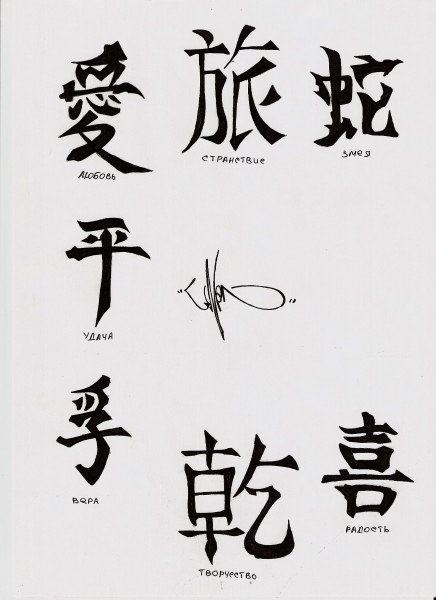 愛
旅
蛇
ЛЮБОВЬ
СТРАНСТВИЕ
ЗМЕЯ
平
УДАЧА
孚
乾
喜
ВЕРА
ТВОРЧЕСТВО
РАДОСТЬ